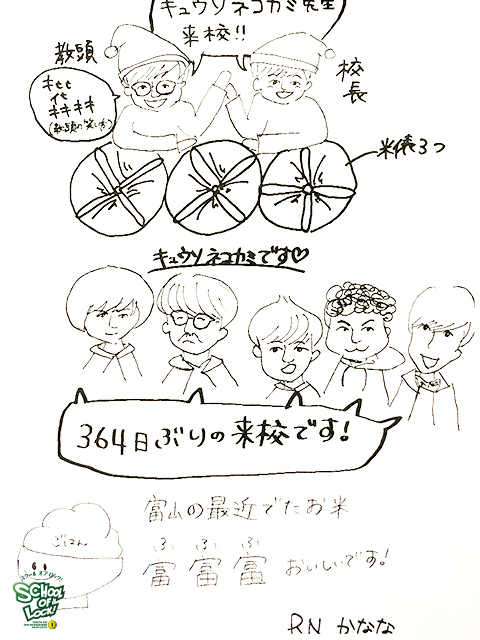 キュウソネコカミ先生
来校!!
教頭
校長
キヒヒ
イヒ
キキキキ
(教頭の笑い方)
米俵3つ
キュウソネコカミです♡
364日ぶりの来校です!
ごはん
富山の最近でたお米
ふ ふ ふ
富 富 富 おいしいです!
RN かなな
スクール オブ ロック!
SCHOOL OF LOCK!